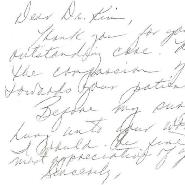 Dear Dr. Kim,
Thank you for you
outstanding care.
the compassion
towards your patien
Before my sur
hung unto your w
I would be fine
most appreciative of y
Sincerely,